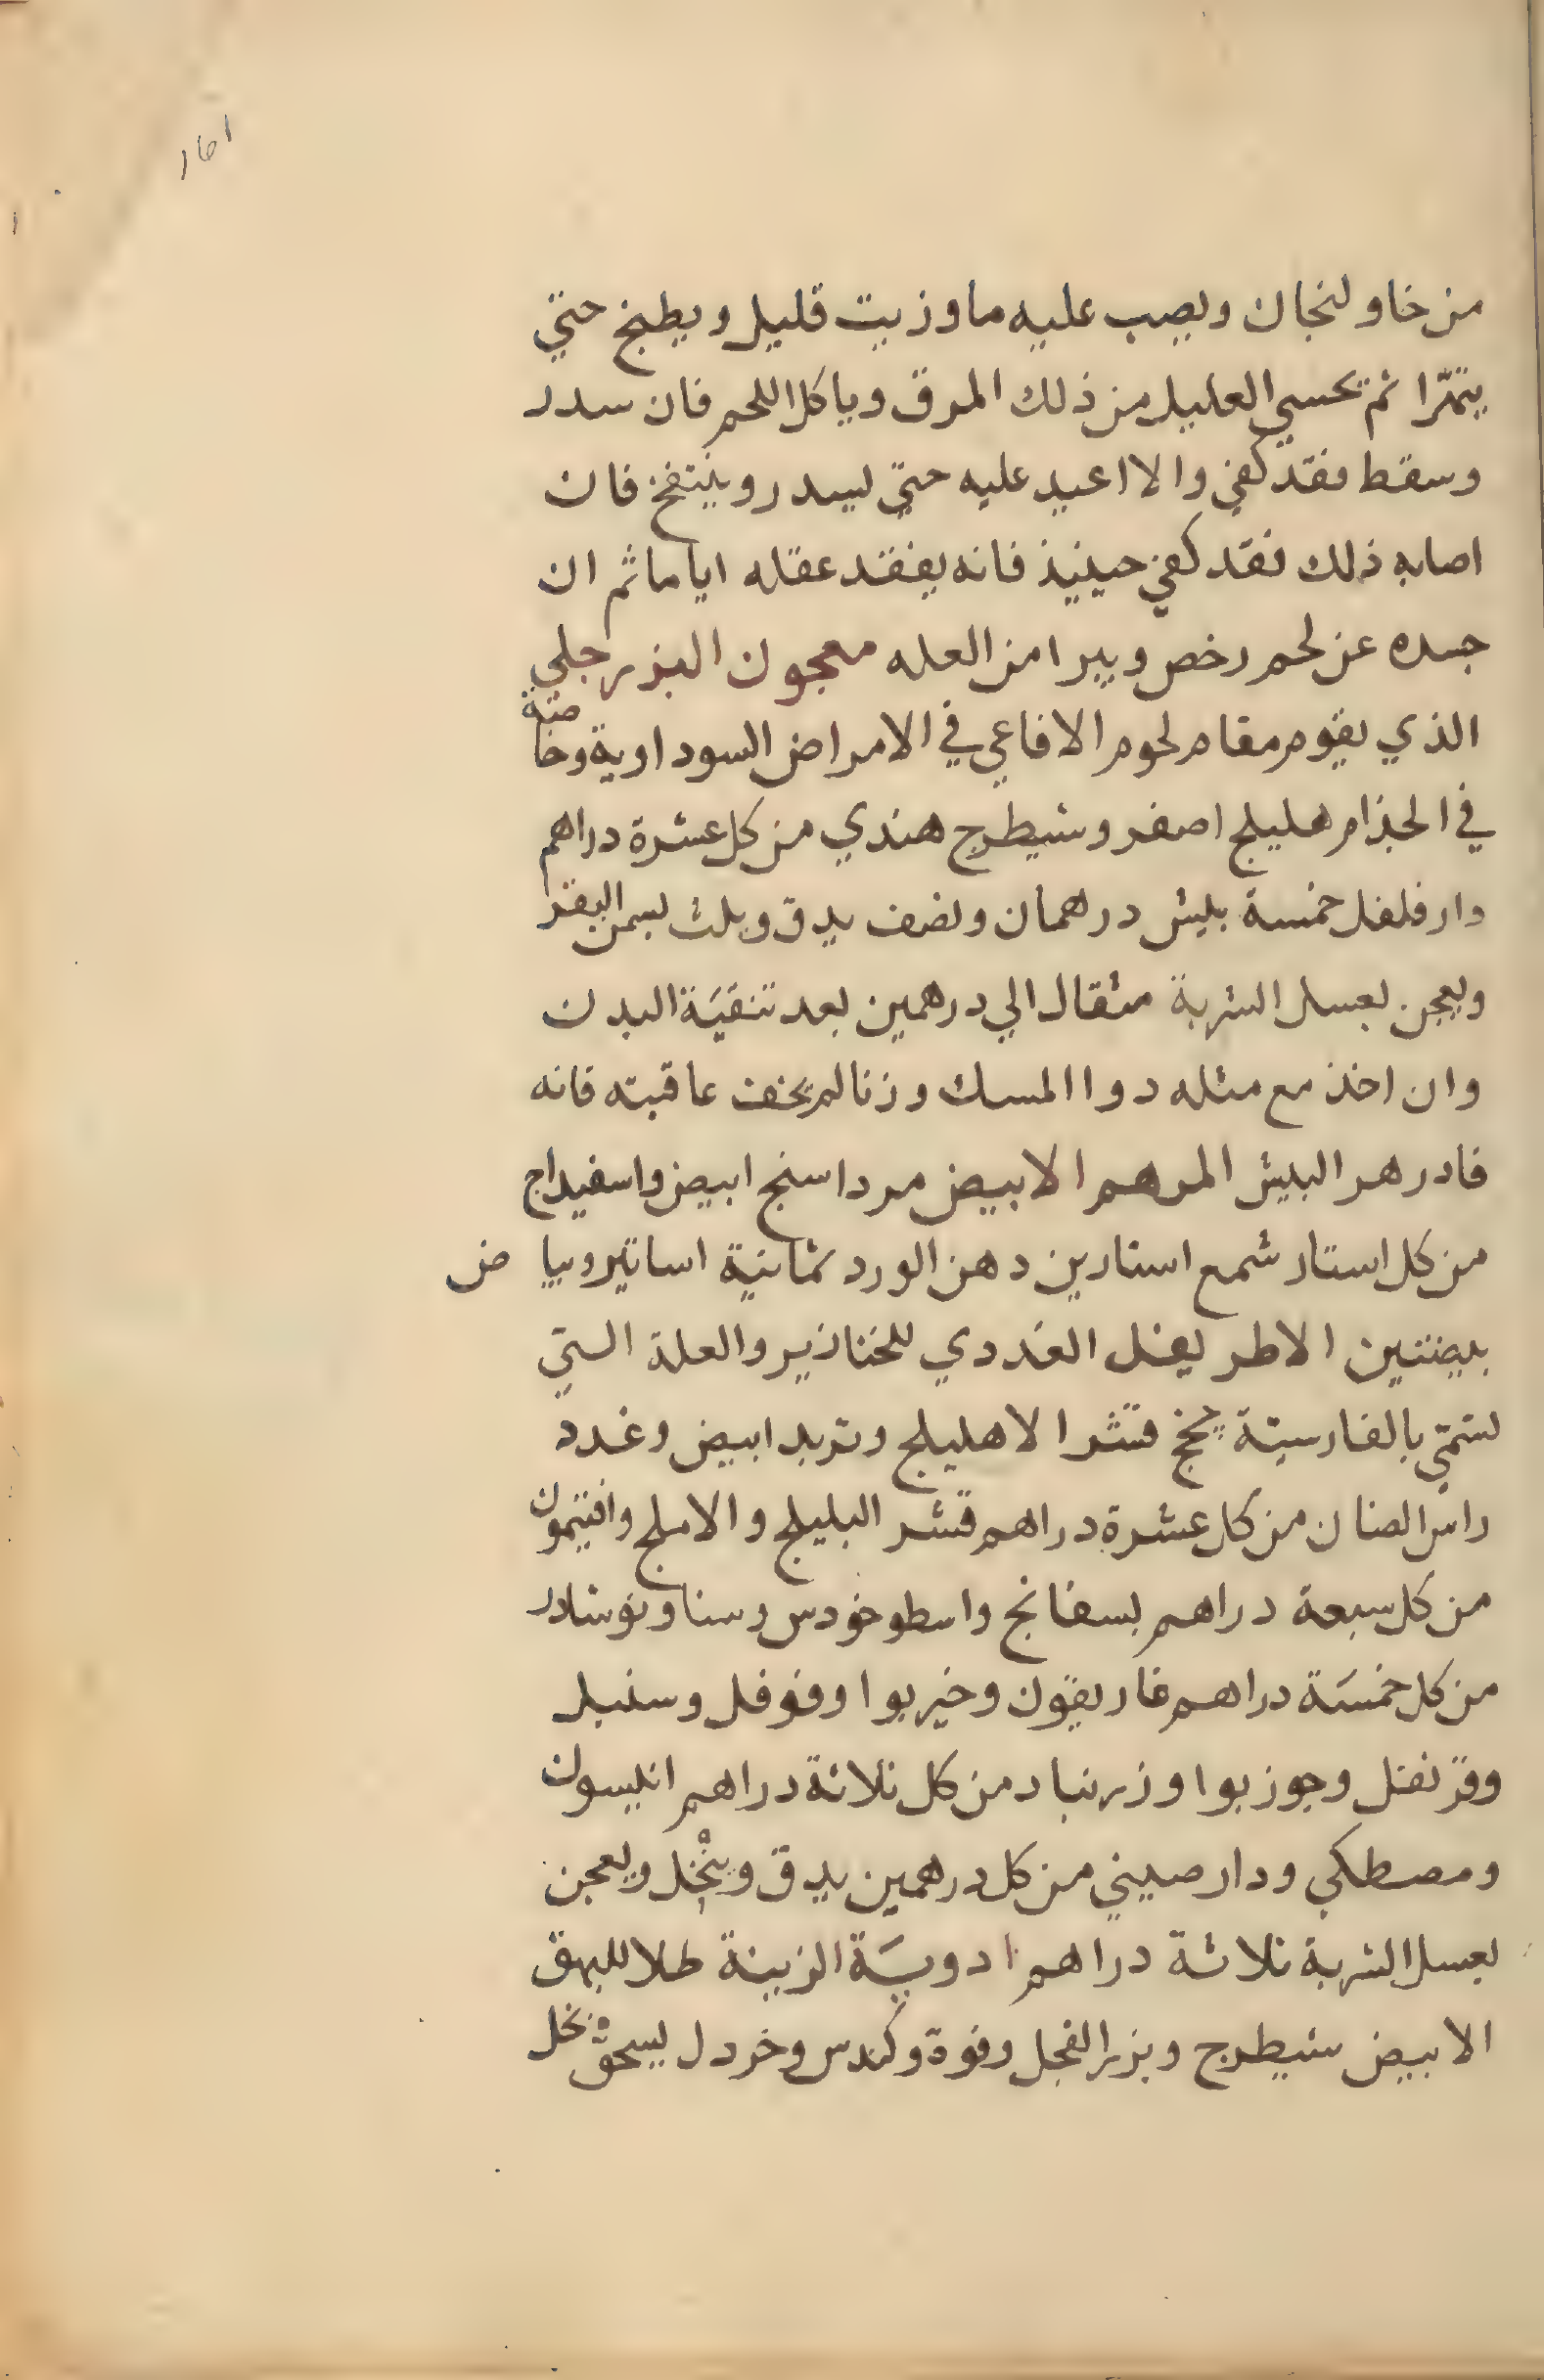 ١٦١
من خاولنجان ويصب عليه ما وزيت قليل ويطبخ حتي
يتهرّا ثم يحسي العليل من ذلك المرق وياكل اللحم فان سدر
وسقط فقد كفي والا اعيد عليه حتي يسدر وينتفخ فان
اصابه ذلك فقد كفي حينيذ فانه يفقد عقله اياما ثم ان
جسده عن لحم رخص ويبرا من العله معجون البزرجلي
الذي يقوم مقام لحوم الافاعي في الامراض السوداوية وخاصّة
في الجذام هليلج اصفر وشيطرج هندي من كل عشرة دراهم
دار فلفل خمسة بيش درهمان ونصف يدق ويلث بسمن البقر
ويعجن بعسل الشربة مثقال الي درهمين بعد تنقيَة البدن
وان اخذ مع مثله دوا المسك وزنا لم يخف عاقبته فانه
فادرهر البيش المرهم الابيض مرداسنج ابيض واسفيداج
من كل استار شمع استارين دهن الورد ثمانية اساتير وبياض
بيضتين الاطريفل الغددي للخنازير والعلة التي
تسمّي بالفارسيّة يخج قشر الاهليلج وتربد ابيض وغدد
راس الضان من كل عشرة دراهم قشر البليلج والاملج وافتيمون
من كل سبعة دراهم بسفانج واسطوخودس وسنا ونوشادر
من كل خمسَة دراهم غاريقون وخيربوا وفوفل وسنبل
وقرنفل وجوزبوا وزرنباد من كل ثلاثة دراهم انيسون
ومصطكي ودارصيني من كل درهمين يدق وينْخل ويعجن
بعسل الشربة ثلاثة دراهم ادويَة الزينة طلا للبهق
الابيض شيطرج وبزر الفجل وفوة وكندس وخردل يسحقْ بخل